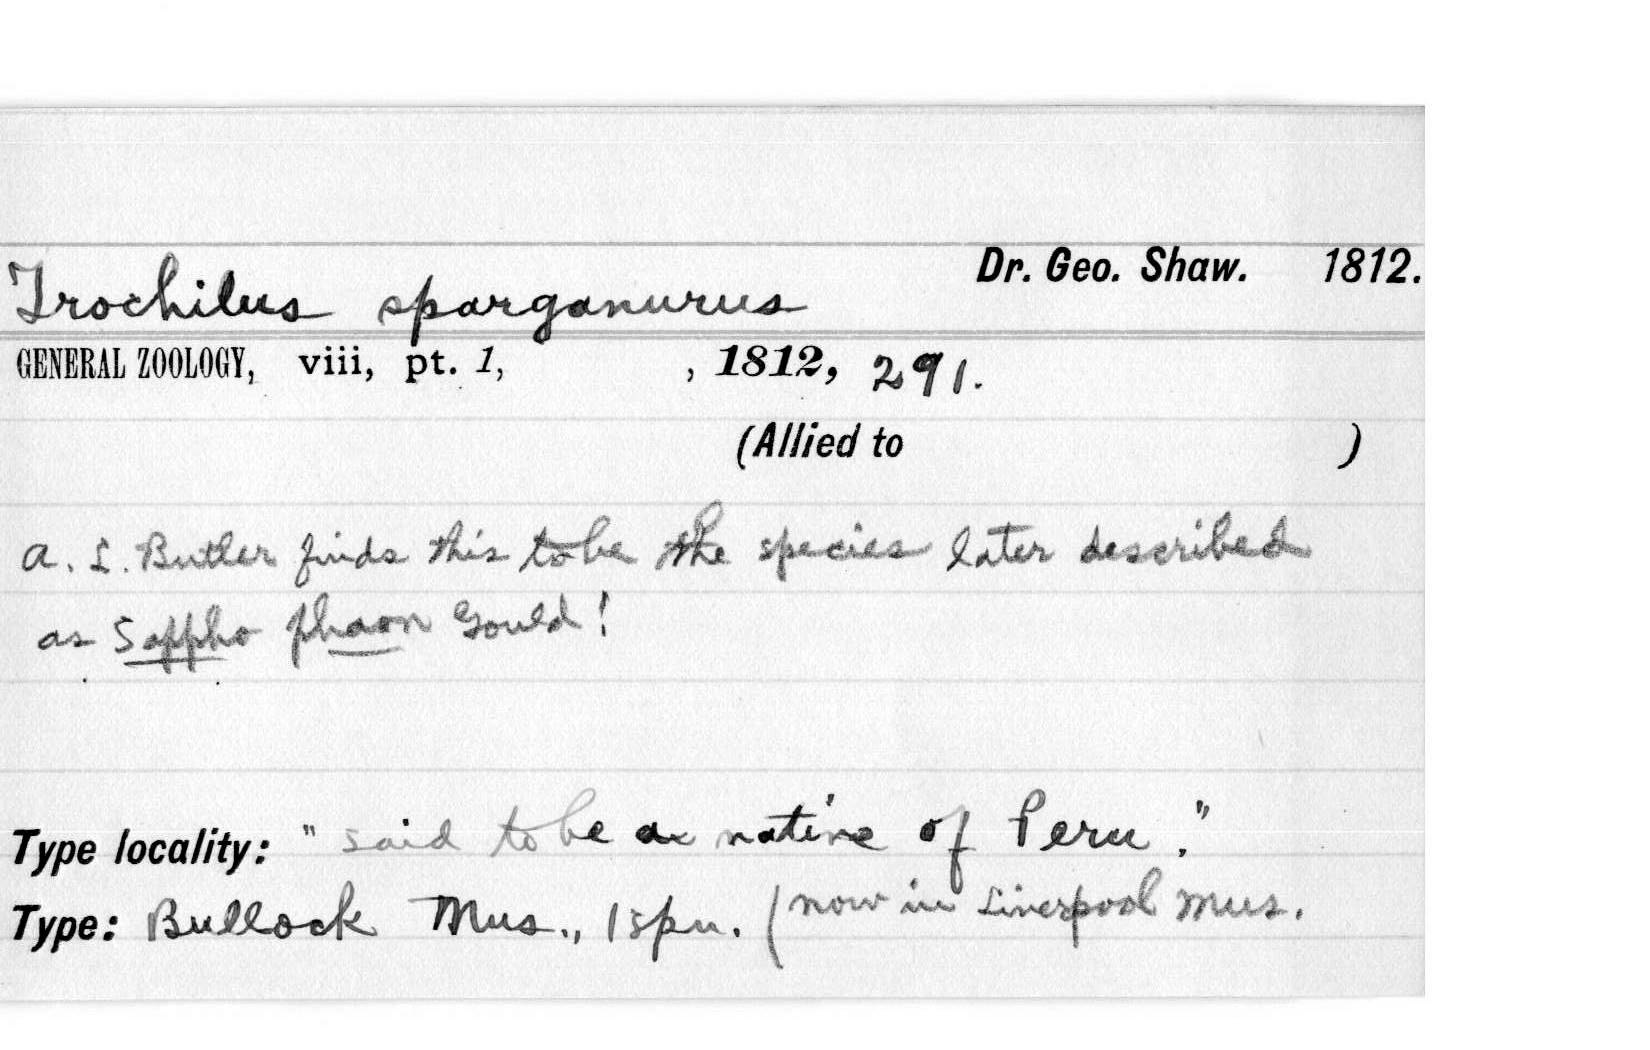 Dr. Geo. Shaw. 1812.
Trochilus sparganurus
GENERAL ZOOLOGY, viii, pt. 1, , 1812, 291.
(Allied to )
A. L. Butler finds this to be the species later described
as Sappho phaon Gould!
Type locality: "said to be a native of Peru."
Type: Bullock Mus., 1 spn. (now in Liverpool Mus.